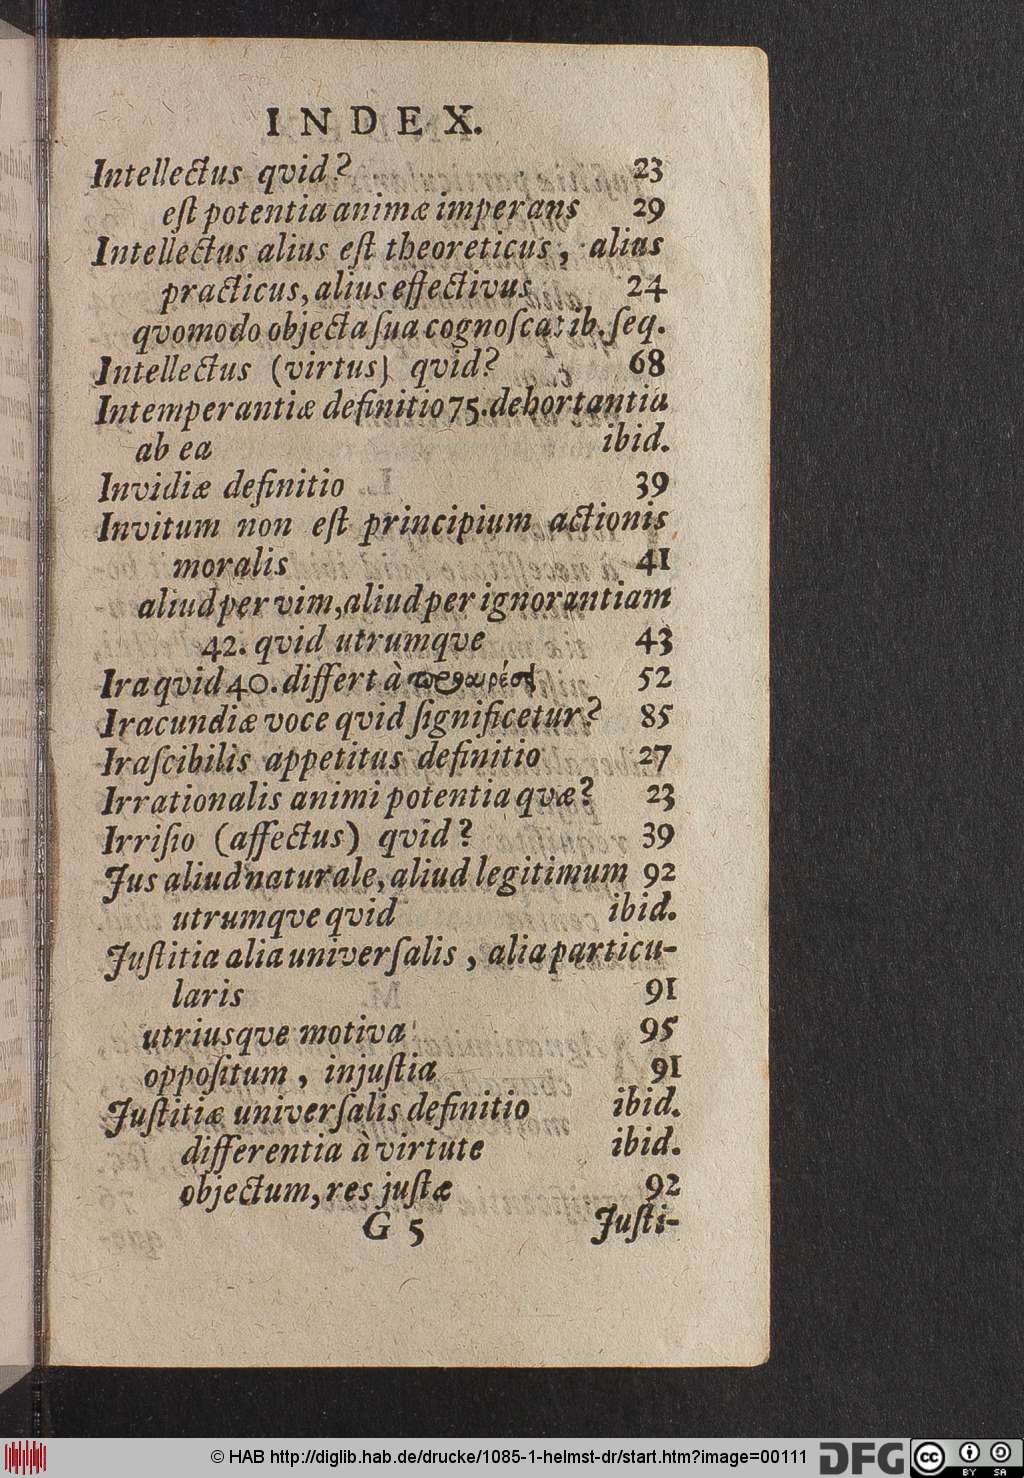 INDEX.
Intellectus qvid? 23
eſt potentia animæ imperans 29
Intellectus alius eſt theoreticus, alius
practicus, alius effectivus 24
qvomodo objecta ſua cognoſcat ib. ſeq.
Intellectus (virtus) qvid? 68
Intemperantiæ definitio 75. dehortantia
ab ea ibid.
Invidiæ definitio 39
Invitum non eſt principium actionis
moralis 41
aliud per vim, aliud per ignorantiam
42. qvid utrumqve 43
Ira qvid 40. differt à 52
Iracundiæ voce qvid ſignificetur? 85
Iraſcibilis appetitus definitio 27
Irrationalis animi potentia qvæ? 23
Irriſio (affectus) qvid? 39
Jus aliud naturale, aliud legitimum 92
utrumqve qvid ibid.
Juſtitia alia univerſalis, alia particu-
laris 91
utriusqve motiva 95
oppoſitum, injuſtia 91
Juſtitiæ univerſalis definitio ibid.
differentia à virtute ibid.
objectum, res juſtæ 92
G 5 Juſti-
© HAB http://diglib.hab.de/drucke/1085-1-helmst-dr/start.htm?image=00111 DFG cc BY SA